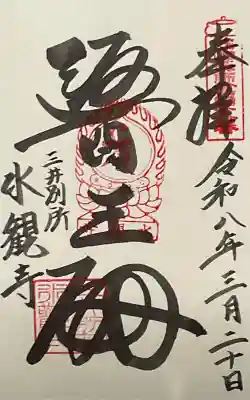 奉拝
令和八年三月二十日
醫王殿
三井別所
水観寺